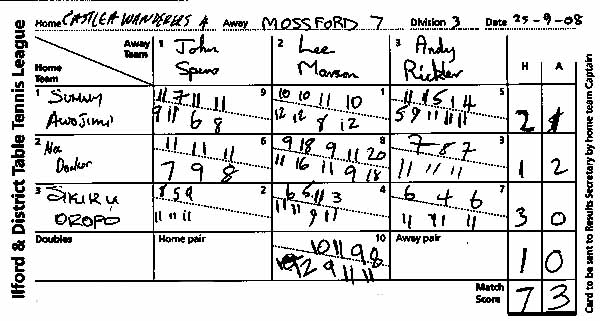 Ilford & District Table Tennis League
Home CASTLEA WANDERERS 4 Away MOSSFORD 7 Division 3 Date 25-9-08
Away Team 1 John 2 Lee 3 Andy H A
Home Team Spero Manson Rickler
1 SUNNY 11 7 11 11 9 10 10 11 10 1 11 11 5 1 4 5
AWOJIMI 9 11 6 8 12 12 8 12 5 9 11 11 11 2 1
2 11 11 11 6 9 18 9 11 20 8 7 8 7 3
Donker 7 9 8 11 16 11 9 18 11 11 11 1 2
3 SIKIRU 8 5 9 2 6 5 11 3 4 6 4 6 7
OROPO 11 11 11 11 11 9 11 11 11 11 3 0
Doubles Home pair 10 Away pair
10 11 9 8
12 9 11 11 1 0
Match Score 7 3
Card to be sent to Results Secretary by home team Captain